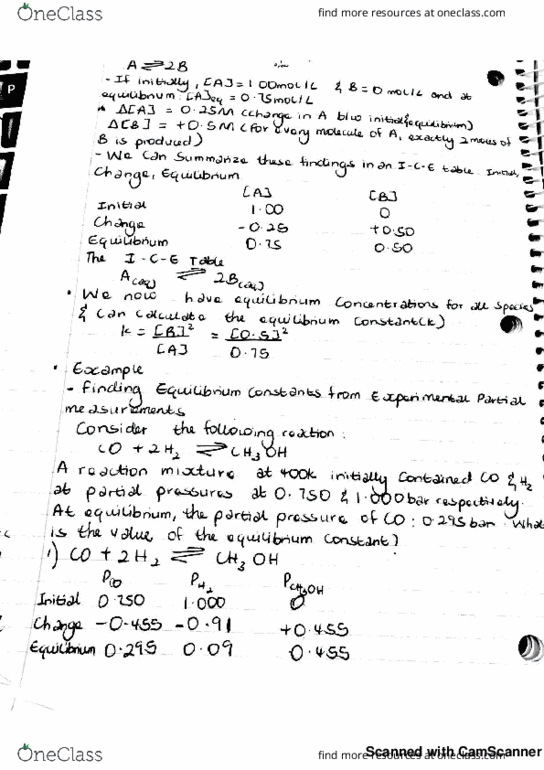 OneClass
find more resources at oneclass.com
A ⇌ 2B
- If initially, [A]=1.00mol/L & B=0 mol/L and at
equilibrium [A]eq = 0.75mol/L
Δ[A] = 0.25M (change in A b/w initial & equilibrium)
Δ[B] = +0.5M (for every molecule of A, exactly 2 moles of
B is produced)
- We can summarize these findings in an I-C-E table. Initial,
Change, Equilibrium
[A] [B]
Initial 1.00 0
Change -0.25 +0.50
Equilibrium 0.75 0.50
The I-C-E Table
A(aq) ⇌ 2B(aq)
• We now have equilibrium concentrations for all species
& can calculate the equilibrium constant(k)
k = [B]² = [0.5]²
[A] 0.75
• Example
- Finding Equilibrium Constants from Experimental Partial
measurements
Consider the following reaction:
CO + 2H₂ ⇌ CH₃OH
A reaction mixture at 400k initially contained CO & H₂
at partial pressures at 0.750 & 1.000bar respectively.
At equilibrium, the partial pressure of CO: 0.295bar. What
is the value of the equilibrium constant?
1) CO + 2H₂ ⇌ CH₃OH
PCO PH₂ PCH₃OH
Initial 0.750 1.000 0
Change -0.455 -0.91 +0.455
Equilibrium 0.295 0.09 0.455
Scanned with CamScanner
OneClass
find more resources at oneclass.com